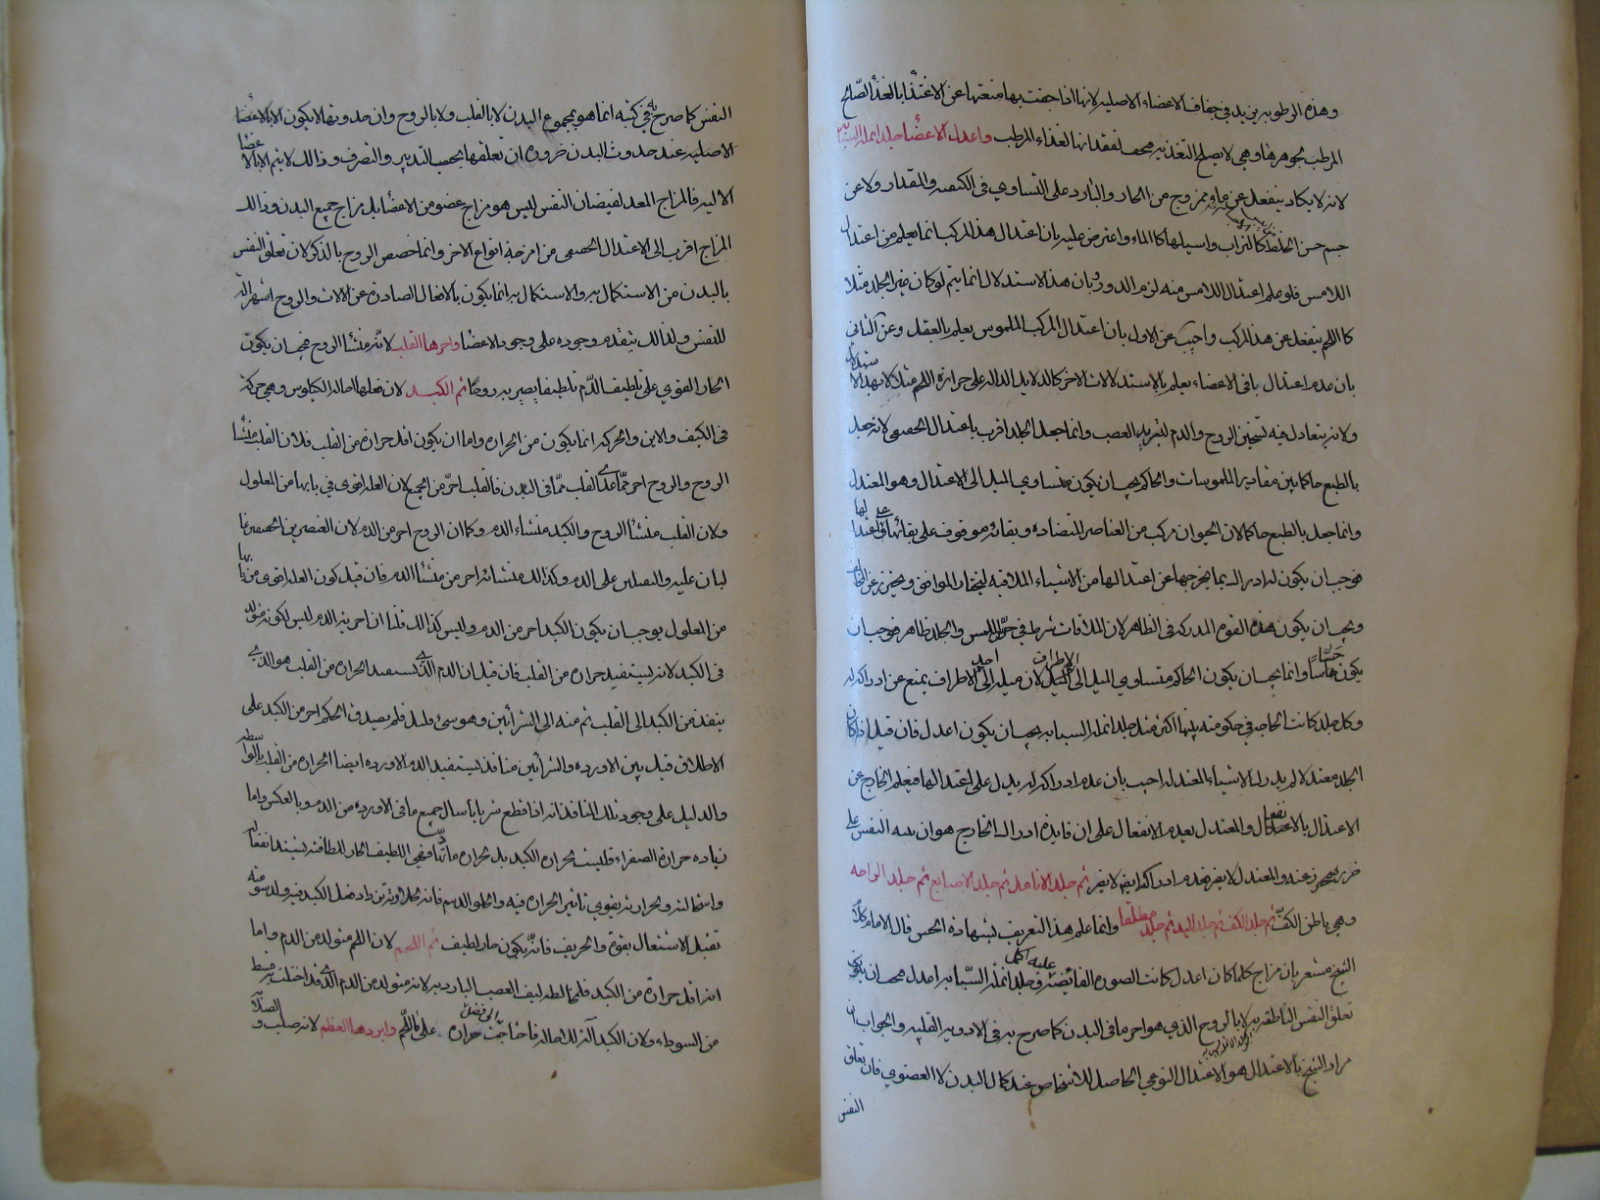 وهذه الرطوبة يزيد في جفاف الاعضاء الاصلية لانها اذا جفت بها منعتها عن الاغتذاء بالغذاء الصالح
المرطب بجوهرها وهي لا يصلح للتغذية بحمها لفقدانها الغذاء المرطب واعدل الاعضاء جلد انملة السبابة
لانه لا يكاد ينفعل عن ماء ممزوج من الحار والبارد على التساوي في الكيفية والمقدار ولا عن
جسم حسن الخلط كالتراب واسيلها كالماء واعترض عليه بان اعتدال هذا المركب انما يعلم من اعتدال
اللامس فلو علم اعتدال اللامس منه لزم الدور وبان هذا الاستدلال انما يتم لو كان غير الجلد مثلا
كاللحم ينفعل عن هذا المركب واجيب عن الاول بان اعتدال المركب الملموس يعلم بالعقل وعن الثاني
بان عدم اعتدال باقي الاعضاء يعلم بالاستدلالات الاخر كالدلايل الدالة على حرارة اللحم مثلا لا بهذا الاستدلال
ولانه يتعادل فيه تسخين الروح والدم لتبريد العصب وانما جعل الجلد اقرب باعتدال الحقيقي لانه جعل
بالطبع حاكما بين مقادير الملموسات والحاكم يجب ان يكون متساوي الميل الى الاعتدال وهو المعتدل
وانما جعل بالطبع حاكما لان الحيوان مركب من العناصر المتضادة وبقائه موقوف على بقائها على اعتدالها
فوجب ان يكون له ادراك بما يخرجها عن اعتدالها من الاشياء الملاقية ليختار الموافق ويحترز عن المخالف
ويجب ان يكون هذه القوة المدركة في الظاهر لان الملاقات شرط في حس اللمس والجلد ظاهر فوجب ان
يكون حساسا وانما يجب ان يكون الحاكم متساوي الميل الى الاطراف لان ميله الى احد الاطراف يمنع عن ادراكه له
وكل جلد كانت الحاجة في حكومته بينها اكثر مثل جلد انملة السبابة يجب ان يكون اعدل فان قيل اذا كان
الجلد معتدلا لم يدرك الاشياء المعتدلة اجيب بان عدم ادراكه له يدل على اعتدالها فيعلم الخارج عن
الاعتدال بالانفعال والمعتدل بعدم الانفعال على ان فايدة ادراك الخارج هو ان ينبه النفس على
ضرر يتحرز عنه والمعتدل لا يضر فعدم ادراكه ايضا لا يضر ثم جلد الانامل ثم جلد الاصابع ثم جلد الراحة
وهي باطن الكف ثم جلد الكف ثم جلد اليد ثم جلد مطلقا وانما علم هذا التعريف بشهادة الحس قال الامام كلام
الشيخ مشعر بان مزاج كلما كان اعدل كانت الصورة الفائضة عليه اكمل وجلد انملة السبابة اعدل فيجب ان يكون
تعلق النفس الناطقة به لا بالروح الذي هو احر ما في البدن كما صرح به في الادوية القلبية والجواب ان
مراد الشيخ بالاعتدال هو الاعتدال النوعي الحاصل للاشخاص عند كمال البدن لا العضوي فان تعلق
النفس
النفس كما صرح به في كتبه انما هو بمجموع البدن لا بالقلب ولا بالروح وان حدوثها لا يكون الا بالاعضاء
الاصلية عند حدوث البدن ضرورة ان تعلقها بحسب التدبير والتصرف وذلك لا يتم الا بالاعضاء
الالية فالمزاج المعد لفيضان النفس ليس هو مزاج عضو من الاعضاء بل مزاج جميع البدن وذلك
المزاج اقرب الى الاعتدال الحقيقي من امزجة انواع الاخر وانما خصص الروح بالذكر لان تعلق النفس
بالبدن من الاستكمال به والاستكمال به انما يكون بالافعال الصادرة عن الالات والروح اشهر الة
للنفس ولذلك يتقدم وجوده على وجود الاعضاء واحرها القلب لانه منشأ الروح فيجب ان يكون
الحار القوي على تلطيف الدم تلطيفا يصير به روحا ثم الكبد لان فعلها احالة الكيلوس وهي حركة
في الكيف والاين والحركة انما يكون من الحرارة واما ان يكون اقل حرارة من القلب فلان القلب منشأ
الروح والروح احر مما عدا القلب مما في البدن فالقلب احر من الجميع لان العلة اقوى في بابها من المعلول
ولان القلب منشأ الروح والكبد منشاء الدم وكما ان الروح احر من الدم لان العنصرين الخفيفين
غالبان عليه والثقيلين على الدم وكذلك منشائه احر من منشأ الدم فان قيل كون العلة اقوى من بابها
من المعلول يوجب ان يكون الكبد احر من الدم وليس كذلك قلنا ان احرية الدم ليس لكونه متولد
في الكبد لانه يستفيد حرارة من القلب فان قيل ان الدم الذي يستفيد الحرارة من القلب هو الذي
ينفذ من الكبد الى القلب ثم منه الى الشرائين وهو شيء قليل فلم يصدق الحكم احر من الكبد على
الاطلاق قيل بين الاوردة والشرائين منافذ يستفيد الدم الاوردة ايضا الحرارة من القلب بالواسطة
والدليل على وجود تلك المنافذ انه اذا قطع شريانا سال جميع ما في الاوردة من الدم وبالعكس واما
زيادة حرارة الصفراء فليست بحرارة الكبد بل بحرارة مادتها فهي اللطيف الحار للطافته يشتد انفعاله
واستحالته ولحرارته يقوي تأثير الحرارة فيه والحلو والدسم فانه لحلاوته تزداد فعل الكبد فيه ولدسومته
تقبل الاشتعال بقوة والحريف فانه يكون حار لطيف ثم اللحم لانه اللحم متولد من الدم واما
انه اقل حرارة من الكبد فلمخالطة ليف العصب البارد به لانه متولد من الدم الذي قد اختلط قسط
من السوداء ولان الكبد آلة للاحالة فاحتاجت الى فضل حرارة على اللحم وابردها العظم لانه صلب والصلابة